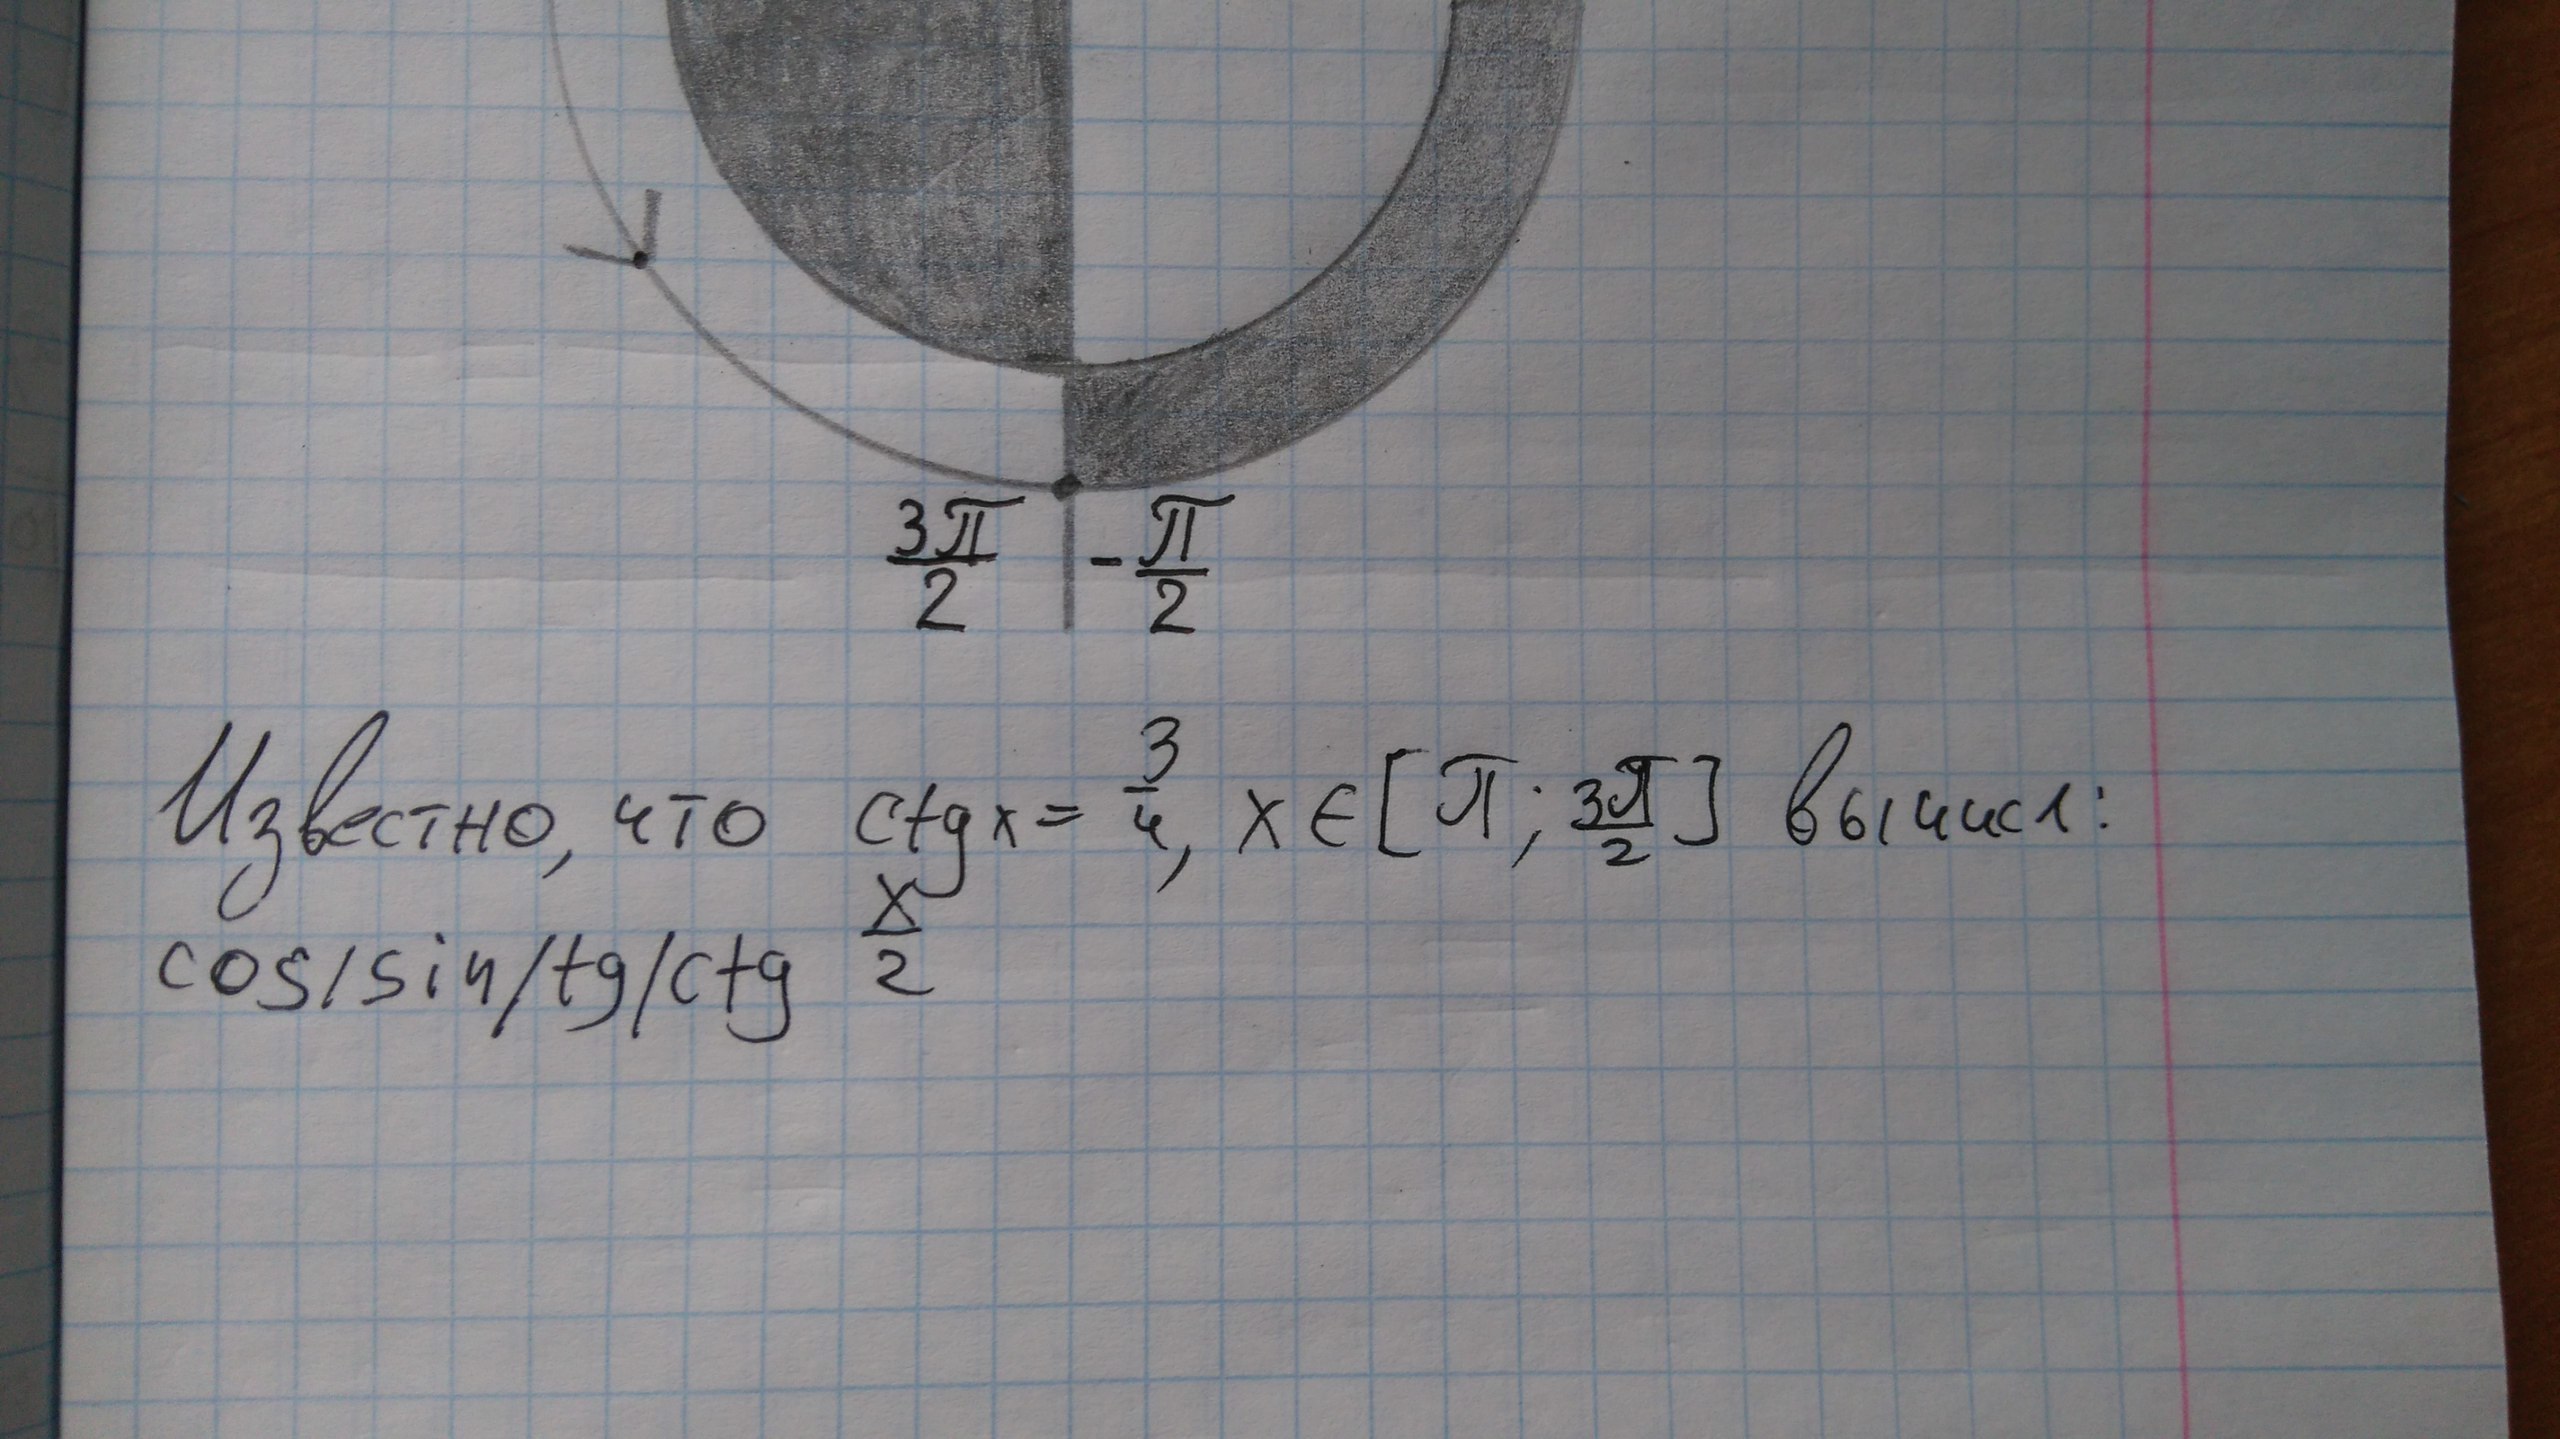 3π/2 -π/2
Известно, что ctg x = 3/4, x ∈ [π; 3π/2] вычисл:
cos/sin/tg/ctg x/2